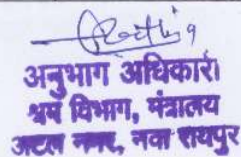 अनुभाग अधिकारी
श्रम विभाग, मंत्रालय
अटल नगर, नवा रायपुर